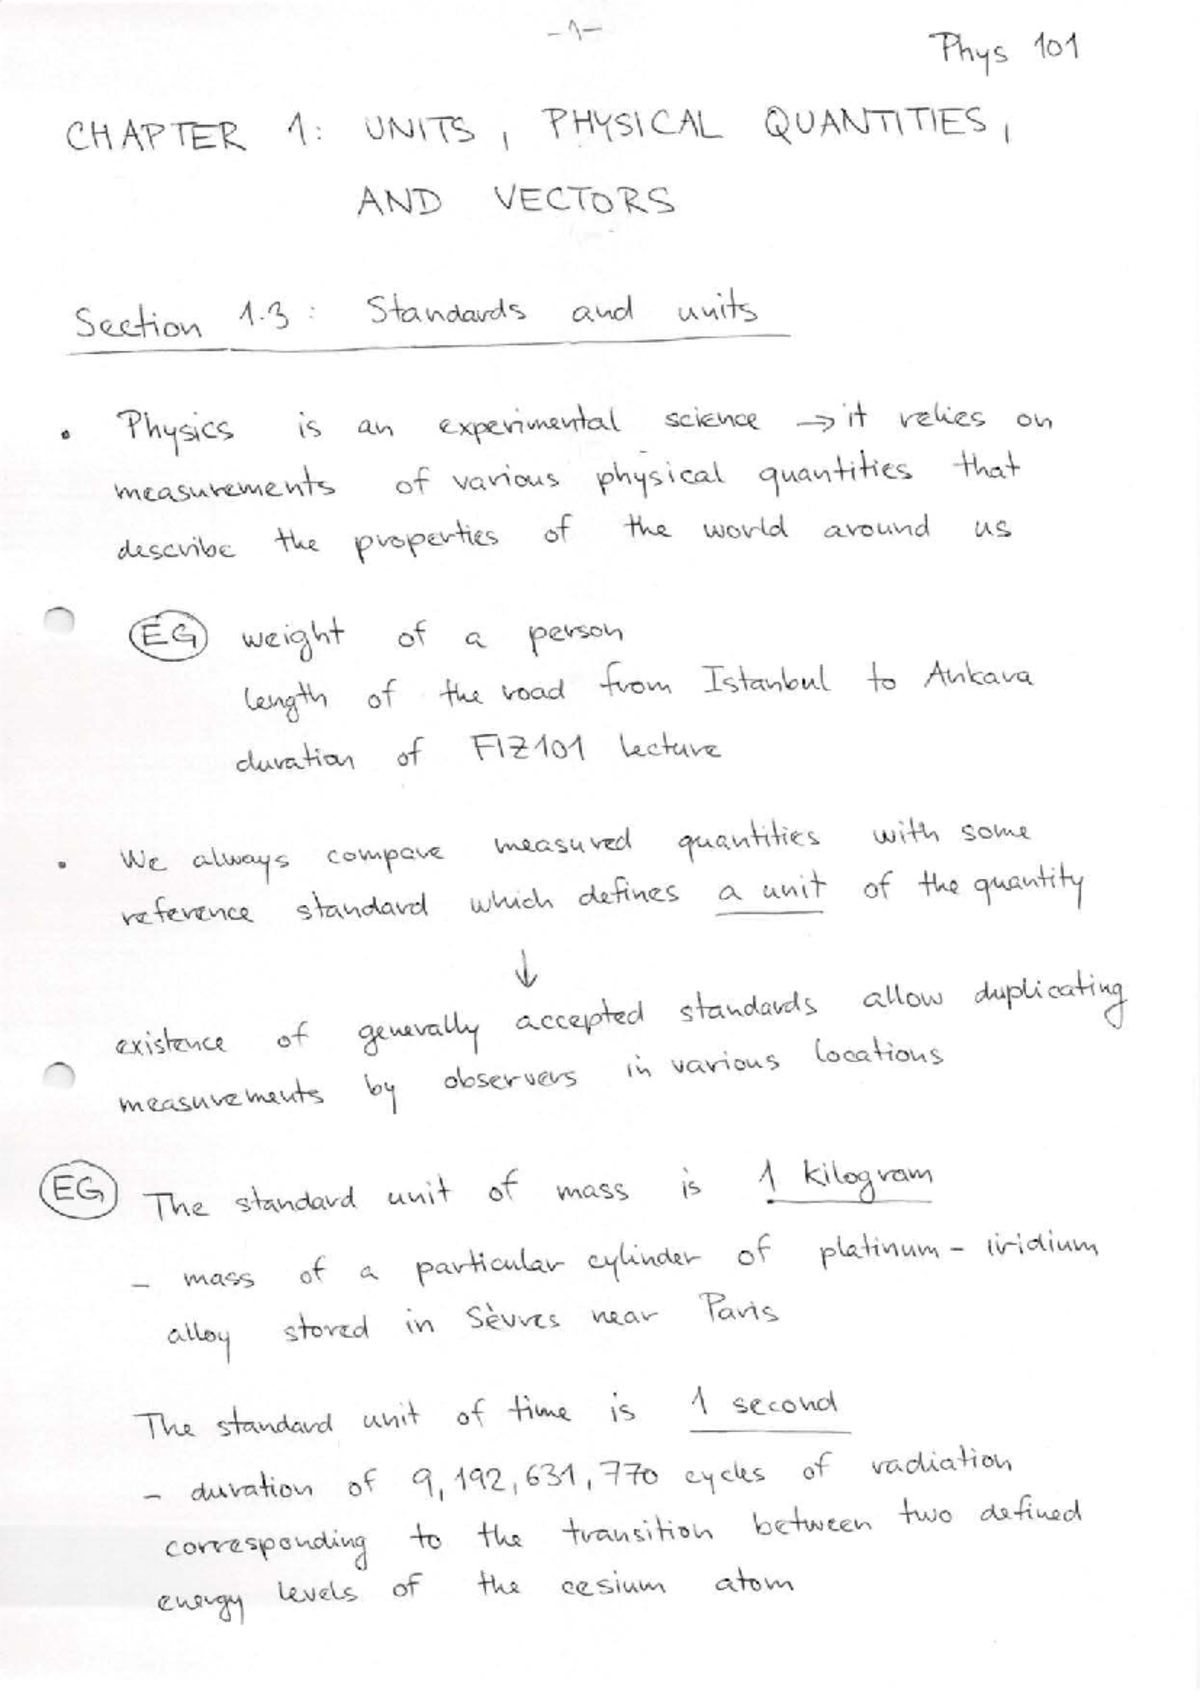 -1-
Phys 101
CHAPTER 1: UNITS, PHYSICAL QUANTITIES,
AND VECTORS
Section 1.3: Standards and units
• Physics is an experimental science → it relies on
measurements of various physical quantities that
describe the properties of the world around us
EG weight of a person
length of the road from Istanbul to Ankara
duration of FIZ101 lecture
• We always compare measured quantities with some
reference standard which defines a unit of the quantity
↓
existence of generally accepted standards allow duplicating
measurements by observers in various locations
EG The standard unit of mass is 1 kilogram
- mass of a particular cylinder of platinum - iridium
alloy stored in Sèvres near Paris
The standard unit of time is 1 second
- duration of 9,192,631,770 cycles of radiation
corresponding to the transition between two defined
energy levels of the cesium atom